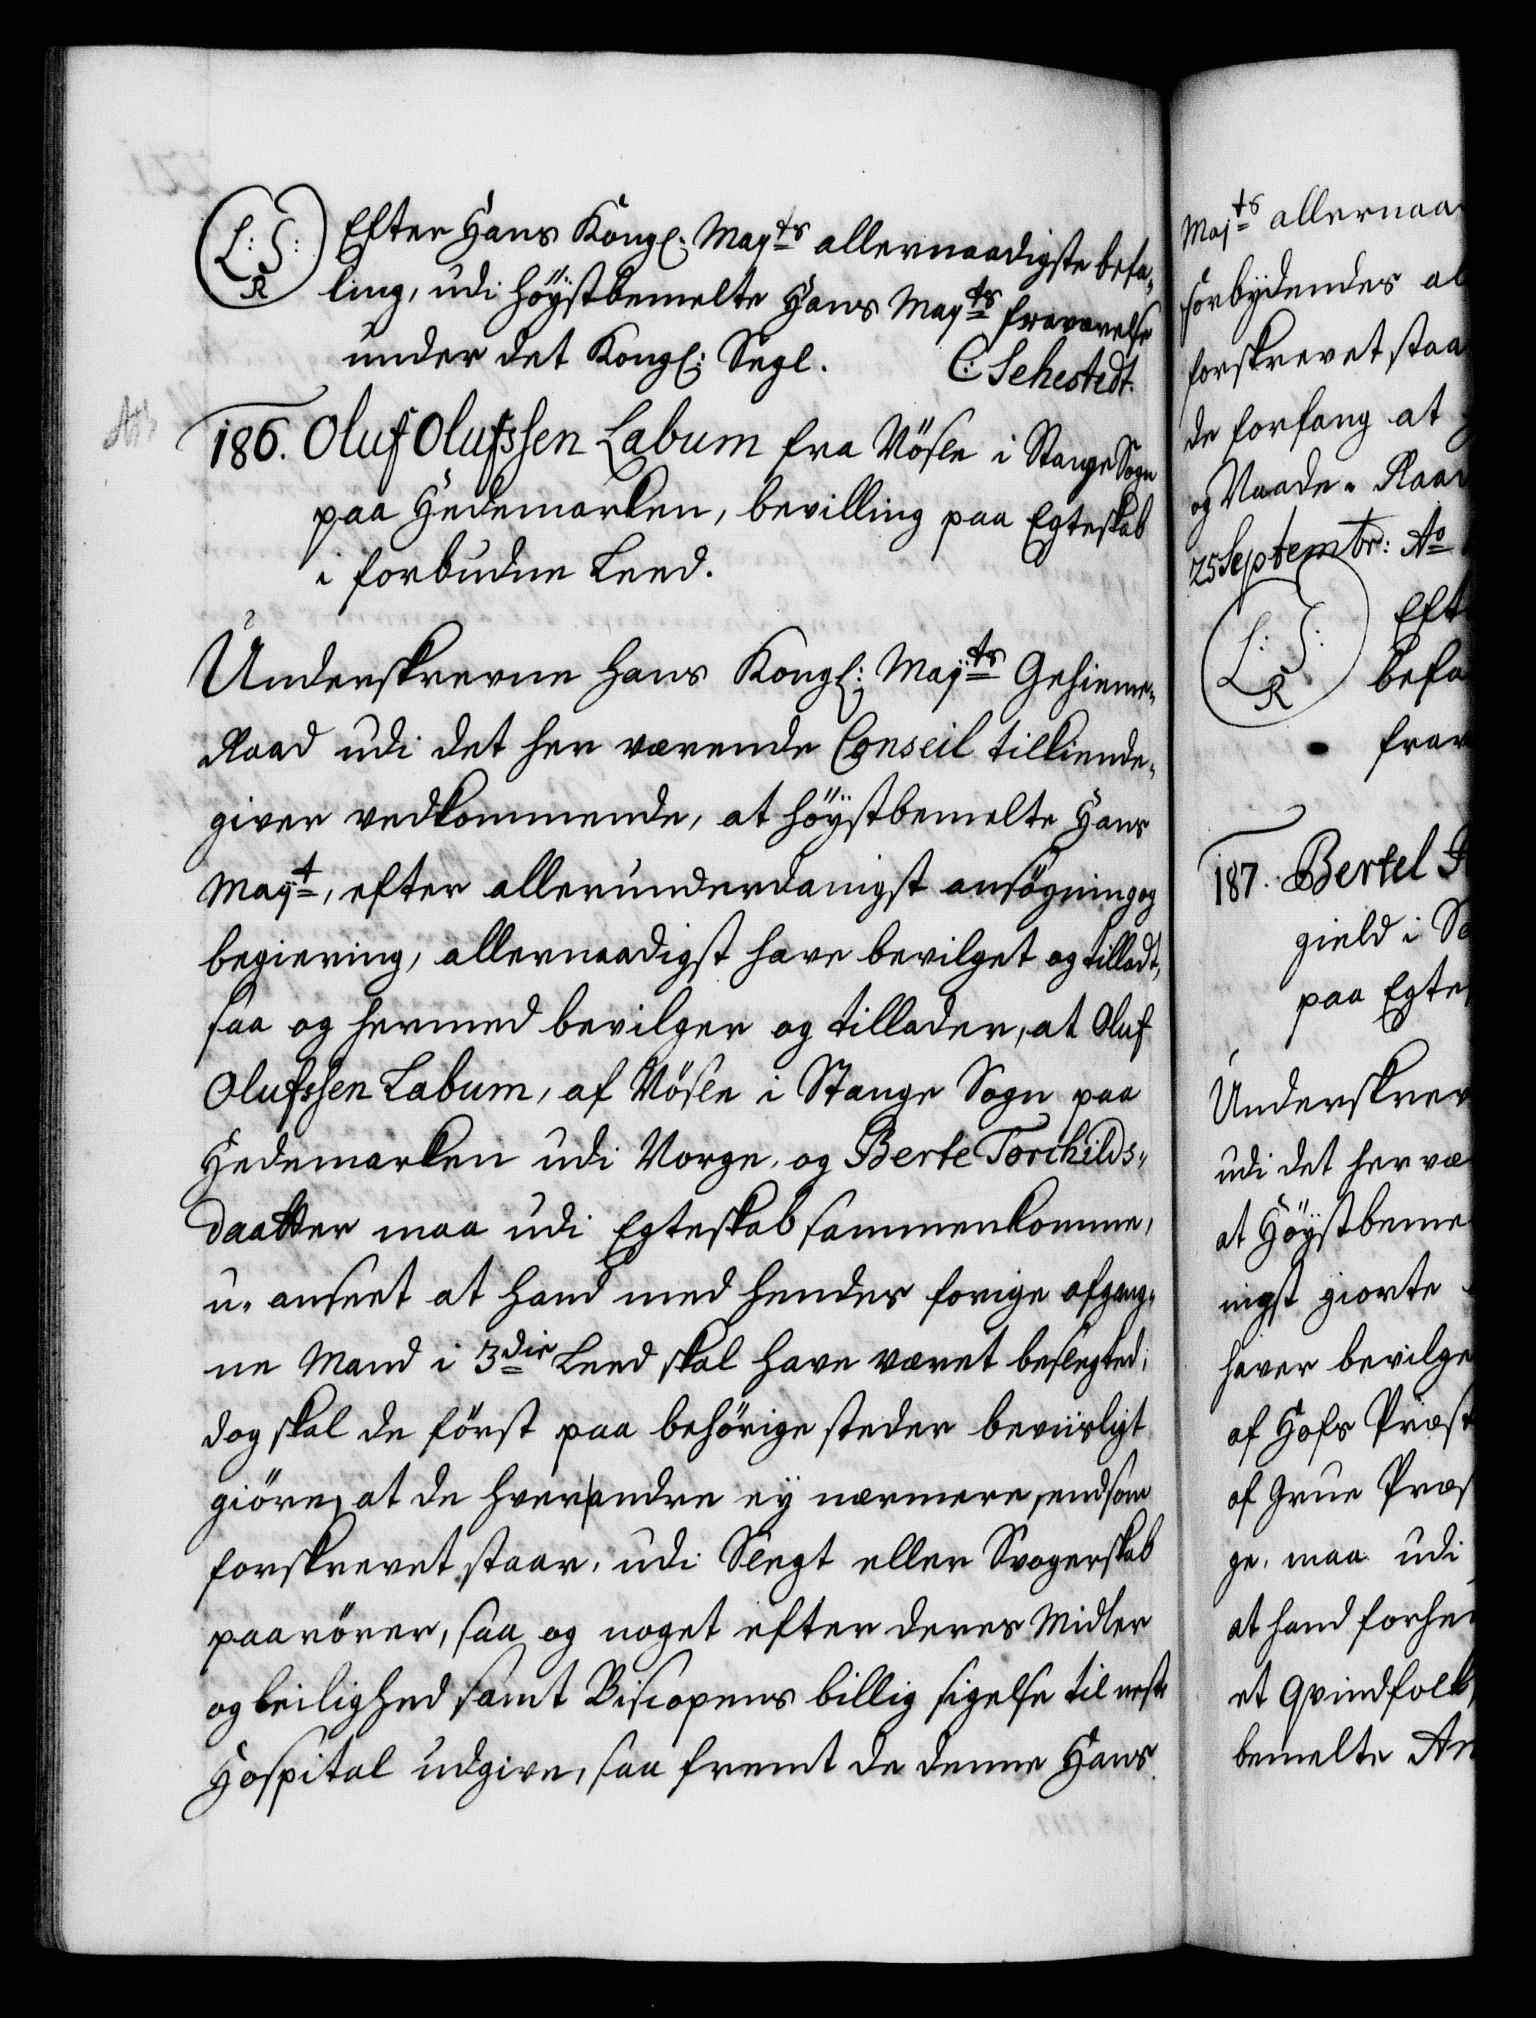 L: S:
R
Efter Hans Kongl: May:ts allernaadigste befa-
ling, udi höystbemelte Hans May:ts fraværelse
under det Kongl: Segl.
C: Sehestedt.
186. Oluf Olufssen Labum fra Nösle i Stange Sogn
paa Hedemarken, bevilling paa Egteskab
i forbudne Leed.
Underskrevne Hans Kongl: May:ts Geheime-
Raad udi det her værende Conseil tilkiende-
giver vedkommende, at höystbemelte Hans
May:t, efter allerunderdanigst ansögning og
begiering, allernaadigst have bevilget og tilladt,
saa og hermed bevilger og tillader, at Oluf
Olufssen Labum, af Nösle i Stange Sogn paa
Hedemarken udi Norge, og Berte Torchilds-
daatter maa udi Egteskab sammenkomme,
u-anseet at hand med hendes forige afgang-
ne Mand i 3die Leed skal have været beslegted;
dog skal de först paa behörige steder beviisligt
giöre, at de hverandre ey nærmere, end som
forskrevet staar, udi Slegt eller Svogerskab
paarörer, saa og noget efter deres Midler
og leilighed samt Biscopens billig sigelse til neste
Hospital udgive, saa fremt de denne Hans
Maj:ts allernaa
forbydendes al
forskrevet staa
de forfang at
og Naade. Raad
25 Septembr: Ao
L: S:
R
Eft
befa
frav
187. Bertel
gield i So
paa Egte
Underskrev
udi det her væ
at Höystbeme
nigst giorte
haver bevilge
af Hofs Præst
af Grue Præs
ge, maa udi
at hand forhe
et Qvindfolk
bemelte An